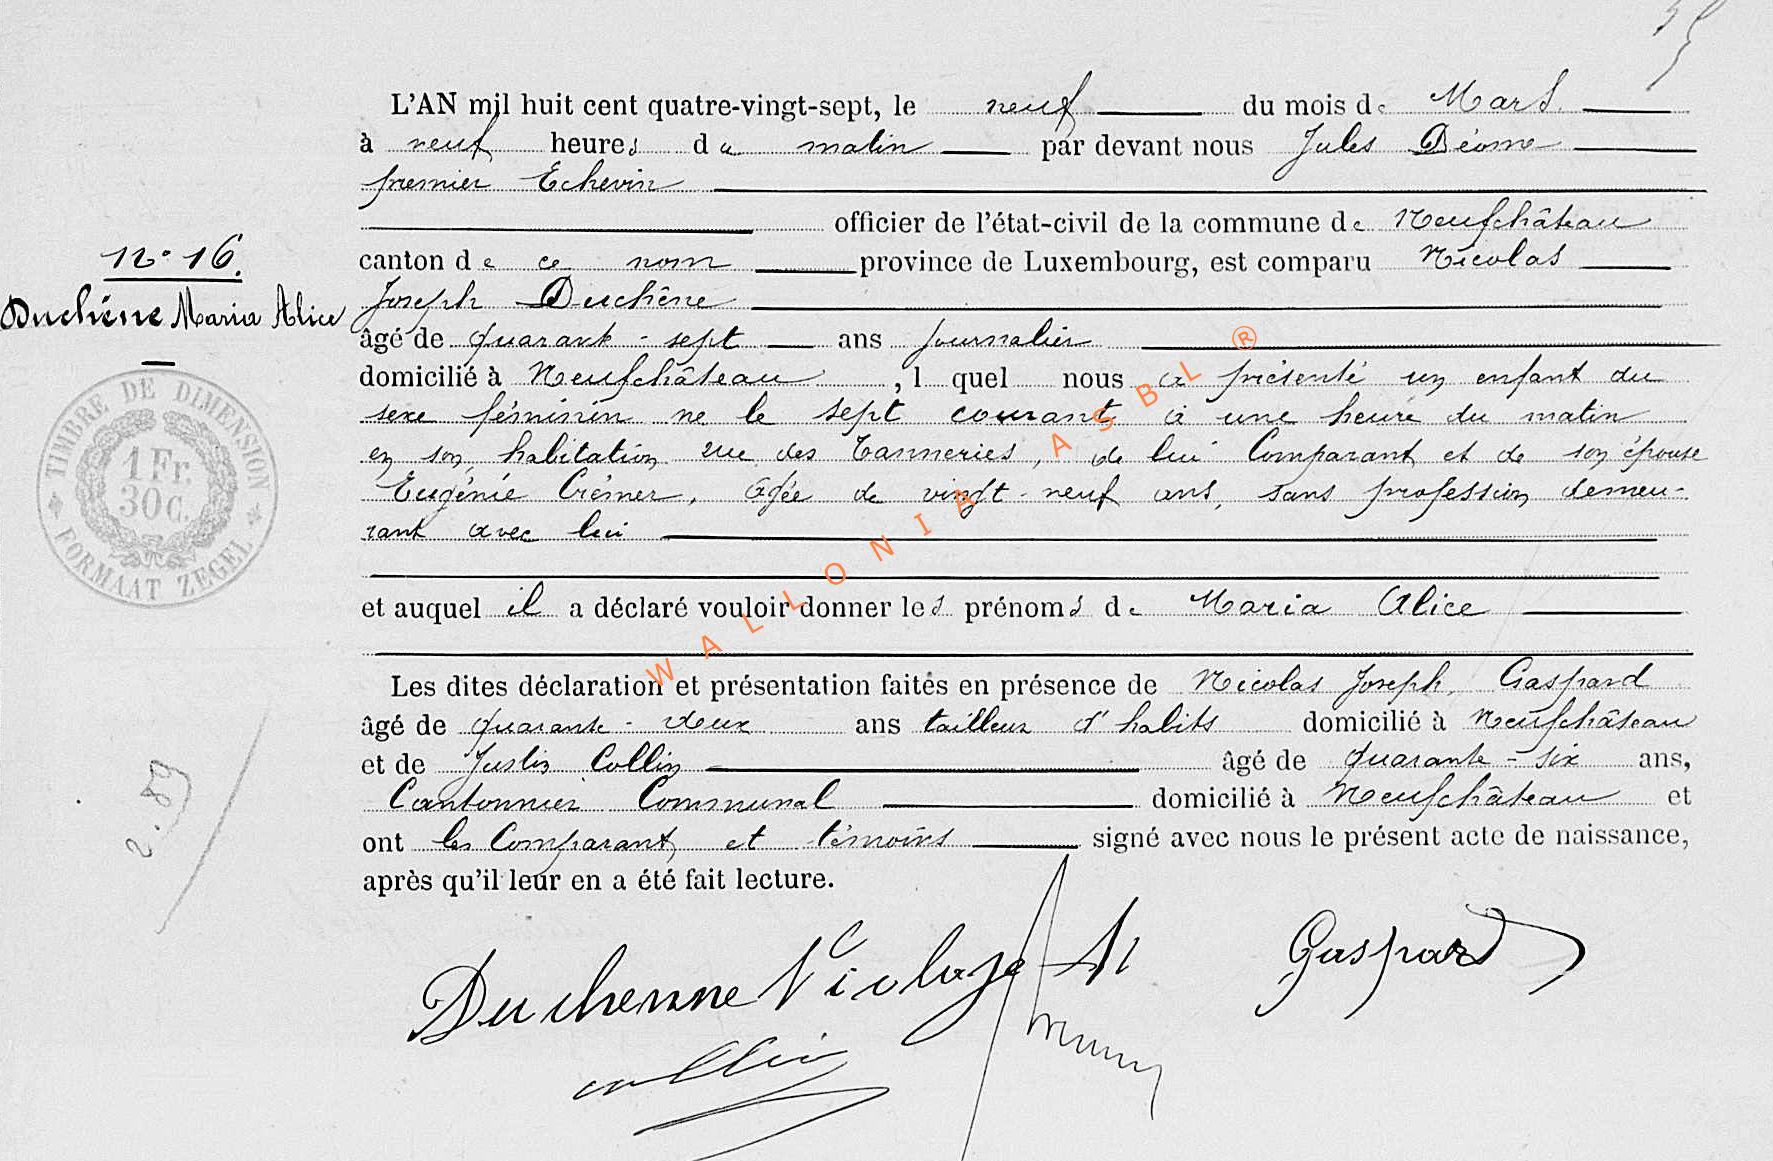 L'AN mil huit cent quatre-vingt-sept, le neuf du mois de Mars
à neuf heures du matin par devant nous Jules Déome
premier Echevin
officier de l'état-civil de la commune de Neufchâteau
canton de ce nom province de Luxembourg, est comparu Nicolas
Joseph Duchêne
âgé de quarante-sept ans journalier
domicilié à Neufchâteau, lequel nous a présenté un enfant du
sexe féminin né le sept courant à une heure du matin
en son habitation rue des Tanneries, de lui Comparant et de son épouse
Eugénie Crémer, âgée de vingt-neuf ans, sans profession demeu-
rant avec lui
et auquel il a déclaré vouloir donner les prénoms de Maria Alice
Les dites déclaration et présentation faites en présence de Nicolas Joseph Gaspard
âgé de quarante-deux ans tailleur d'habits domicilié à Neufchâteau
et de Justin Collin âgé de quarante-six ans,
Cantonnier Communal domicilié à Neufchâteau et
ont les Comparant et témoins signé avec nous le présent acte de naissance,
après qu'il leur en a été fait lecture.
N° 16.
Duchêne Maria Alice
TIMBRE DE DIMENSION
1 Fr.
30 C.
FORMAAT ZEGEL
2.89
Duchenne Nicolas
Gaspard
Collin
WALLONIA ASBL ®